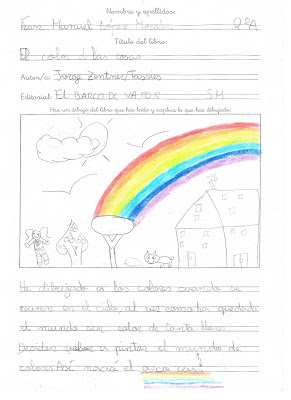 Nombre y apellidos:
Fran Manuel López Morales. 2ºA
Título del libro:
El color de las cosas
Autor/a: Jorge Zentner/Tassies
Editorial: EL BARCO DE VAPOR SM
Haz un dibujo del libro que has leído y explica lo que has dibujado:
He dibujado a los colores cuando se
reunen en el cielo, al ver como ha quedado
el mundo sin color de tanta lluvia.
Deciden volver a pintar el mundo de
colores. Así nació el arco iris.